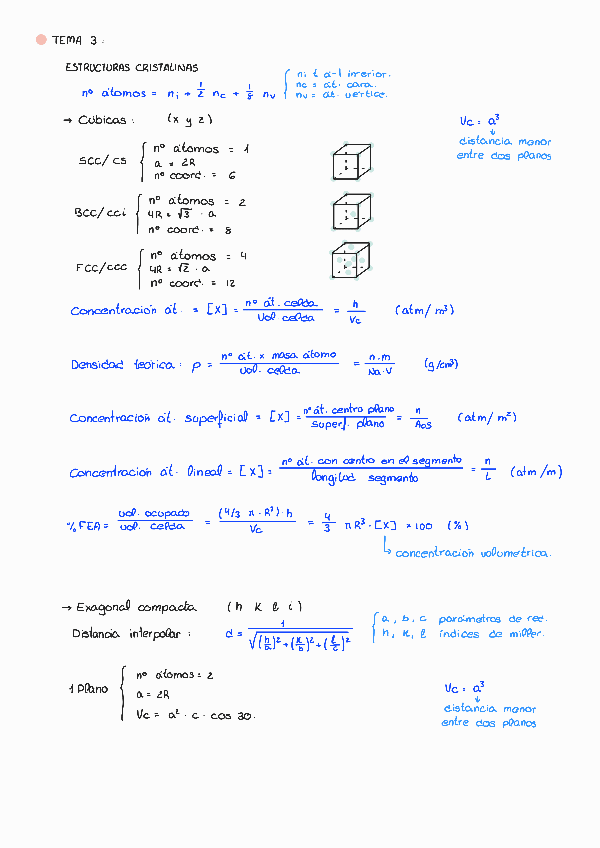 TEMA 3:
ESTRUCTURAS CRISTALINAS
nº átomos = ni + 1/2 nc + 1/8 nv
ni = át. interior.
nc = át. cara.
nv = át. vértice.
→ Cúbicas: (x y z)
Vc = a³
distancia menor
entre dos planos
SCC/CS
nº átomos = 1
a = 2R
nº coord. = 6
BCC/CCi
nº átomos = 2
4R = √3 · a
nº coord. = 8
FCC/CCC
nº átomos = 4
4R = √2 · a
nº coord. = 12
Concentración át. = [X] = nº át. celda / Vol celda = n / Vc (atm/m³)
Densidad teórica: ρ = nº át. x masa átomo / Vol. celda = n·m / Na·V (g/cm³)
Concentración át. superficial = [X] = nº át. centro plano / superf. plano = n / Aos (atm/m²)
Concentración át. lineal = [X] = nº át. con centro en el segmento / longitud segmento = n / L (atm/m)
% FEA = vol. ocupado / vol. celda = (4/3 π · R³) · n / Vc = 4/3 π R³ · [X] × 100 (%)
↳ concentración volumétrica.
→ Exagonal compacta (h k l i)
Distancia interpolar: d = 1 / √((h/a)² + (k/b)² + (l/c)²)
a, b, c parámetros de red.
h, k, l índices de miller.
1 Plano
nº átomos = 2
a = 2R
Vc = a² · c · cos 30.
Vc = a³
distancia menor
entre dos planos